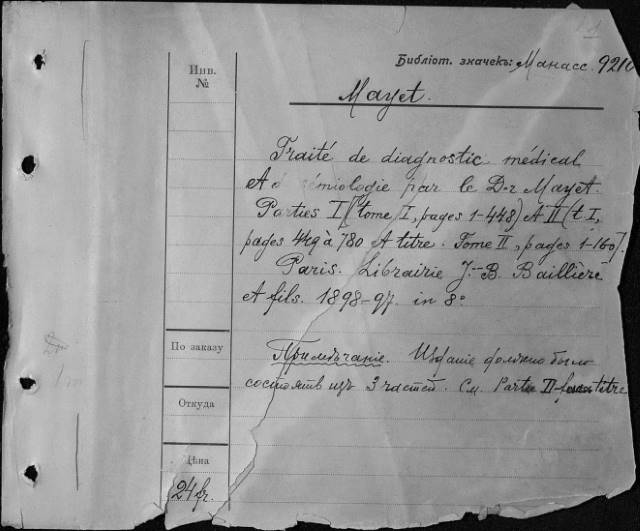 Библіот. значекъ: Манасс. 9210
Инв.
№
Mayet.
Traité de diagnostic médical
et de sémiologie par le D-r Mayet.
Parties I (tome I, pages 1-448) et II (t I,
pages 449 à 780 et titre. Tome II, pages 1-160).
Paris. Librairie J.-B. Baillière
et fils. 1898-97. in 8°
По заказу
Примѣчаніе. Изданіе должно было
состоять изъ 3 частей. См. Partie II titre
Откуда
Цѣна
24 fr.